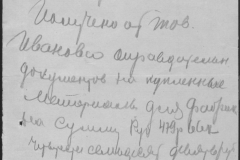 Получено от тов.
Иванова оправдательн
документов на купленные
материалы для фабрики
на сумму Руб 479р
Четыреста семьдесят девять руб